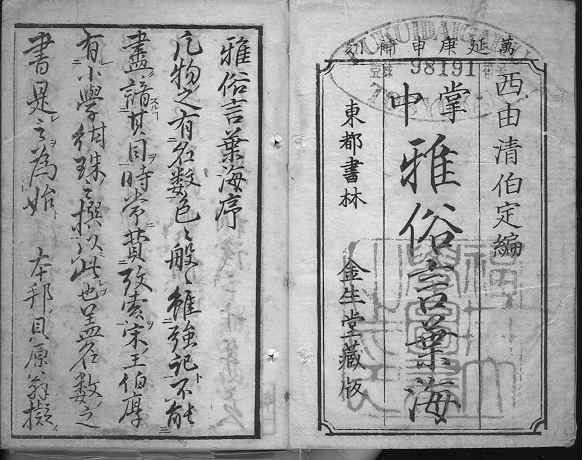 萬延庚申新刻
98191
西由清伯定編
掌中
雅俗言葉海
東都書林
金生堂藏板
雅俗言葉海序
凡物之有名数色々般々雖強記不能
盡諳其目時常費攷索宋王伯厚
有小學紺珠之撰以此也盖名数之
書是之為始 本邦貝原翁擬